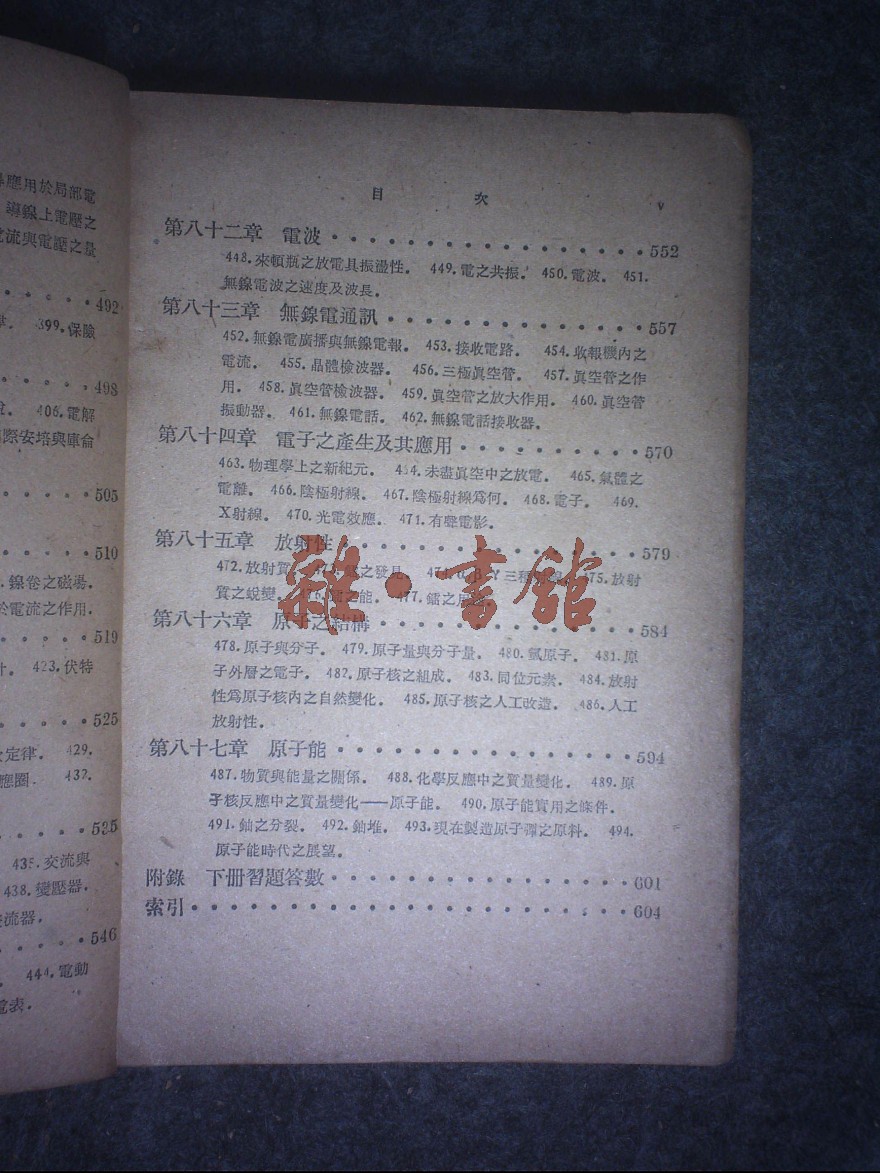 應用於局部電
導線上電壓之
流與電壓之量
492
399.保險
498
406.電解
際安培與庫侖
505
510
線卷之磁場.
於電流之作用.
519
423.伏特
525
定律. 429.
應圈. 432.
525
435.交流與
438.變壓器.
流器.
546
444.電動
電表.
目 次 v
第八十二章 電波 552
448.來頓瓶之放電具振盪性. 449.電之共振. 450.電波. 451.
無線電波之速度及波長.
第八十三章 無線電通訊 557
452.無線電廣播與無線電報. 453.接收電路. 454.收報機內之
電流. 455.晶體檢波器. 456.三極眞空管. 457.眞空管之作
用. 458.眞空管檢波器. 459.眞空管之放大作用. 460.眞空管
振動器. 461.無線電話. 462.無線電話接收器.
第八十四章 電子之產生及其應用 570
463.物理學上之新紀元. 464.未盡眞空中之放電. 465.氣體之
電離. 466.陰極射線. 467.陰極射線爲何. 468.電子. 469.
X射線. 470.光電效應. 471.有聲電影.
第八十五章 放射性 579
472.放射質 之發見. α,β,γ三種 475.放射
質之蛻變. 之能. 477.鐳之
第八十六章 原子之結構 584
478.原子與分子. 479.原子量與分子量. 480.氫原子. 481.原
子外層之電子. 482.原子核之組成. 483.同位元素. 484.放射
性爲原子核內之自然變化. 485.原子核之人工改造. 486.人工
放射性.
第八十七章 原子能 594
487.物質與能量之關係. 488.化學反應中之質量變化. 489.原
子核反應中之質量變化——原子能. 490.原子能實用之條件.
491.鈾之分裂. 492.鈾堆. 493.現在製造原子彈之原料. 494.
原子能時代之展望.
附錄 下册習題答數 601
索引 604
雜·書館